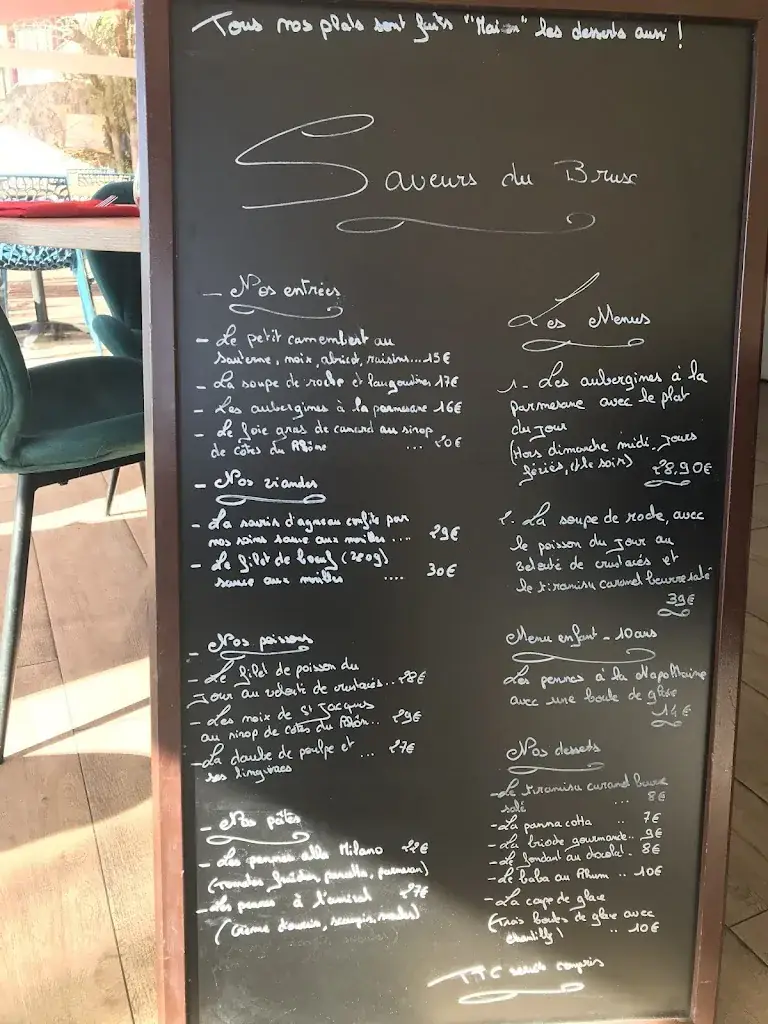 Tous nos plats sont faits "Maison" les desserts aussi !
Saveurs du Brusc
- Nos entrées
- Le petit camembert au
sauterne, noix, abricot, raisins...15€
- La soupe de roche et langoustines 17€
- Les aubergines à la parmesane 16€
- Le foie gras de canard au sirop
de côtes du Rhône ... 20€
- Nos viandes
- La souris d'agneau confite par
nos soins sauce aux morilles .... 29€
- Le filet de boeuf (220g)
sauce aux morilles .... 30€
- Nos poissons
- Le filet de poisson du
jour au velouté de crustacés.. 28€
- Les noix de St Jacques
au sirop de côtes du Rhôn... 29€
- La daube de poulpe et ... 27€
ses linguines
- Nos pâtes
- Les pennes alla Milano 22€
(Tomates, pancetta, parmesan)
- Les pennes à l'amiral 27€
(Crème d'oursin, moules)
Les Menus
1. Les aubergines à la
parmesane avec le plat
du jour
(Hors dimanche midi, jours
fériés, et le soir) 28,90€
2. La soupe de roche, avec
le poisson du jour au
velouté de crustacés et
le tiramisu caramel beurre salé
39€
Menu enfant - 10 ans
Les pennes à la Napolitaine
avec une boule de glace
14€
Nos desserts
- Le tiramisu caramel beurre
salé ... 8€
- La panna cotta .. 7€
- La brioche gourmande.. 9€
- Le fondant au chocolat. 8€
- Le baba au Rhum .. 10€
- La coupe de glace
(Trois boules de glace avec
chantilly) .. 10€
TTC service compris